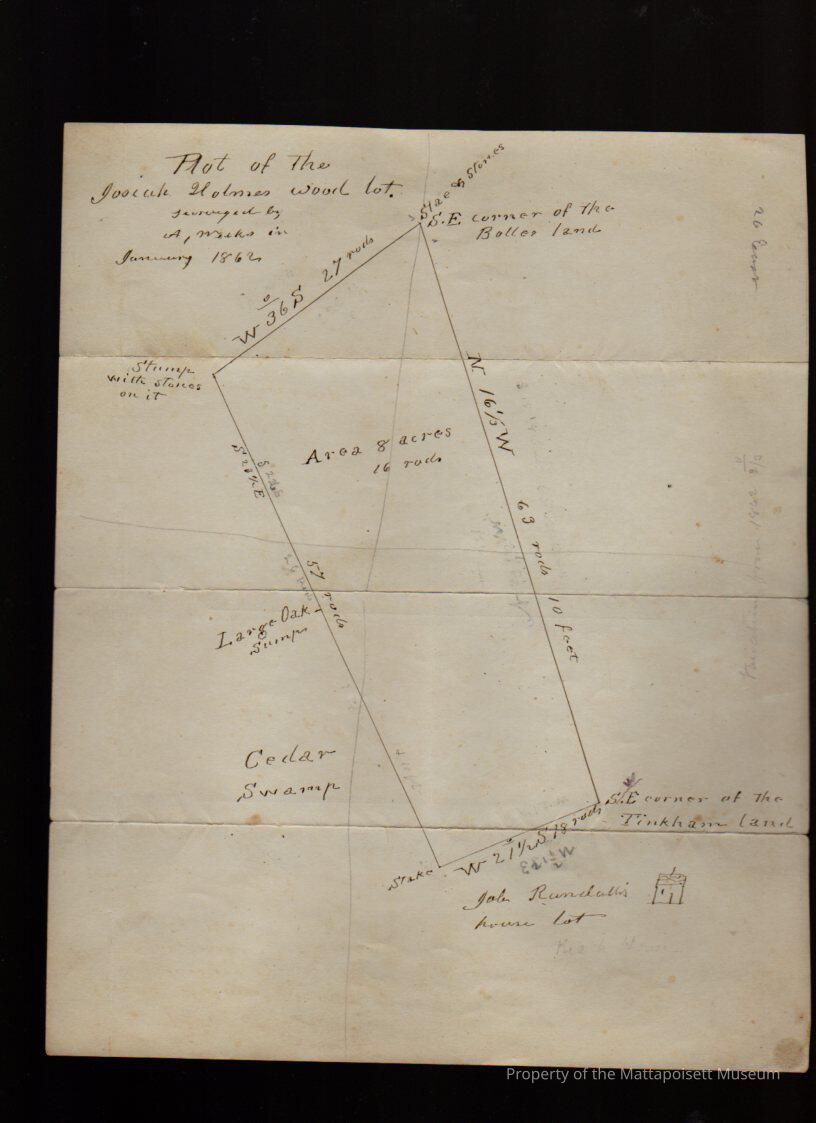 Plot of the
Josiah Holmes wood lot.
surveyed by
A, Weeks in
January 1862
Stake & Stones
S.E corner of the
Bolles land
W 36° S 27 rods
Stump
with stones
on it
Area 8 acres
16 rods
N 16½ W
63 rods 10 feet
57 rods
Large Oak
Stump
Cedar
Swamp
S.E corner of the
Tinkham land
Stake
W 21½° S 18 rods
Job Randall's
house lot
Property of the Mattapoisett Museum